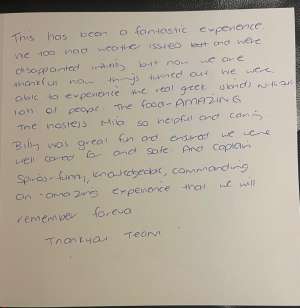 This has been a fantastic experience
we too had weather issues and were
disappointed initially but now we are
thankful how things turned out. We were
able to experience the real greek islands without
lots of people. The food = AMAZING
The hostess Mila so helpful and caring
Billy was great fun and ensured we were
well cared for and safe. And Captain
Spiros-funny, knowledgeable, commanding
an amazing experience that we will
remember foreva
Thankyou Team